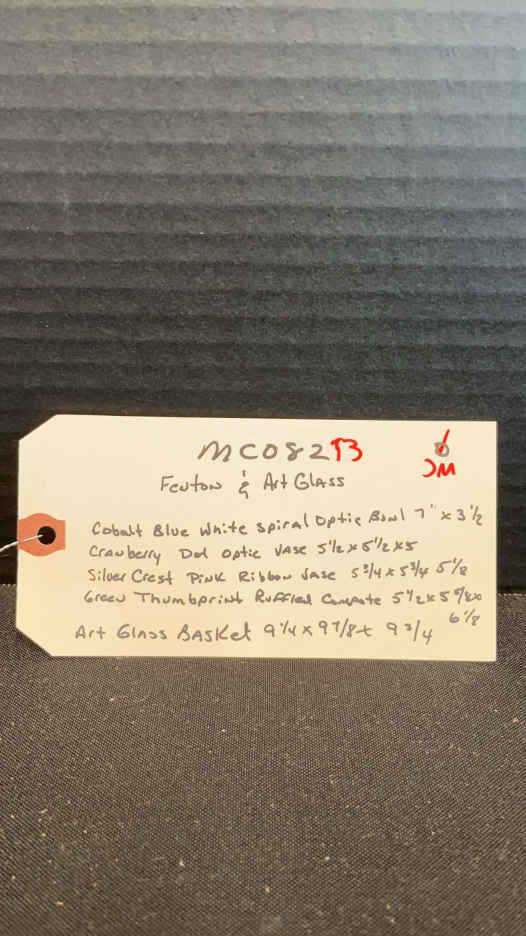 MC082B
JM
Fenton & Art Glass
Cobalt Blue White Spiral Optic Bowl 7" x 3 1/2
Cranberry Dot Optic Vase 5 1/2 x 5 1/2 x 5
Silver Crest Pink Ribbon Vase 5 3/4 x 5 3/4 5 1/8
Green Thumbprint Ruffled Compote 5 1/2 x 5 5/8 x
6 1/8
Art Glass Basket 9 1/4 x 9 7/8 x 9 3/4